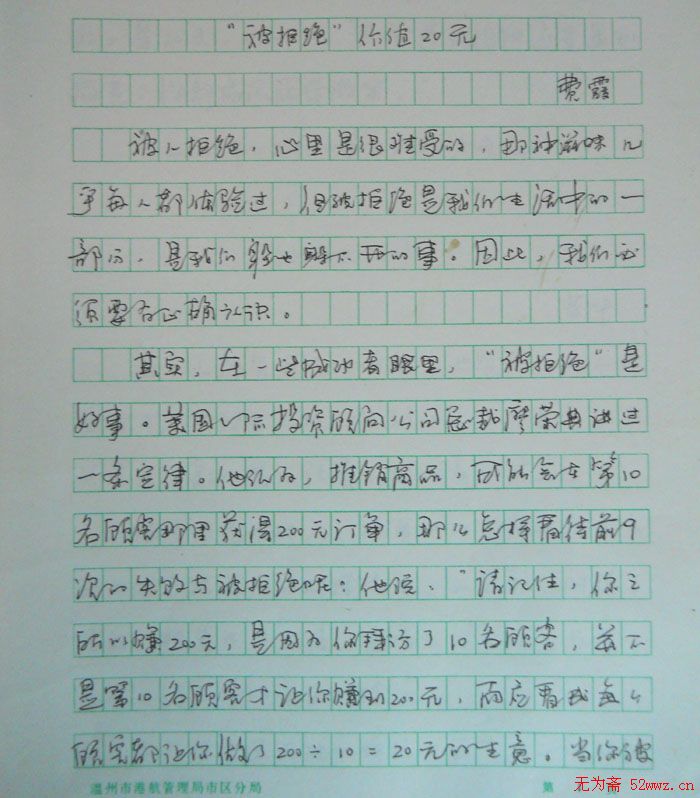 “被拒绝”价值20元
费霞
被人拒绝，心里是很难受的，那种滋味几
乎每人都体验过，但被拒绝是我们生活中的一
部分，是我们躲也躲不开的事。因此，我们必
须要有正确认识。
其实，在一些成功者眼里，“被拒绝”是
好事。美国 投资顾问公司总裁廖荣典讲过
一条定律。他认为，推销商品，可能会在第10
名顾客那里获得200元订单，那么怎样看待前9
次的失败与被拒绝呢？他说，“请记住，你之
所以赚200元，是因为你拜访了10名顾客，并不
是第10名顾客才让你赚到200元，而应看成每个
顾客都让你做了200÷10=20元的生意。当你被
温州市港航管理局市区分局
第
无为斋 52wwz.cn